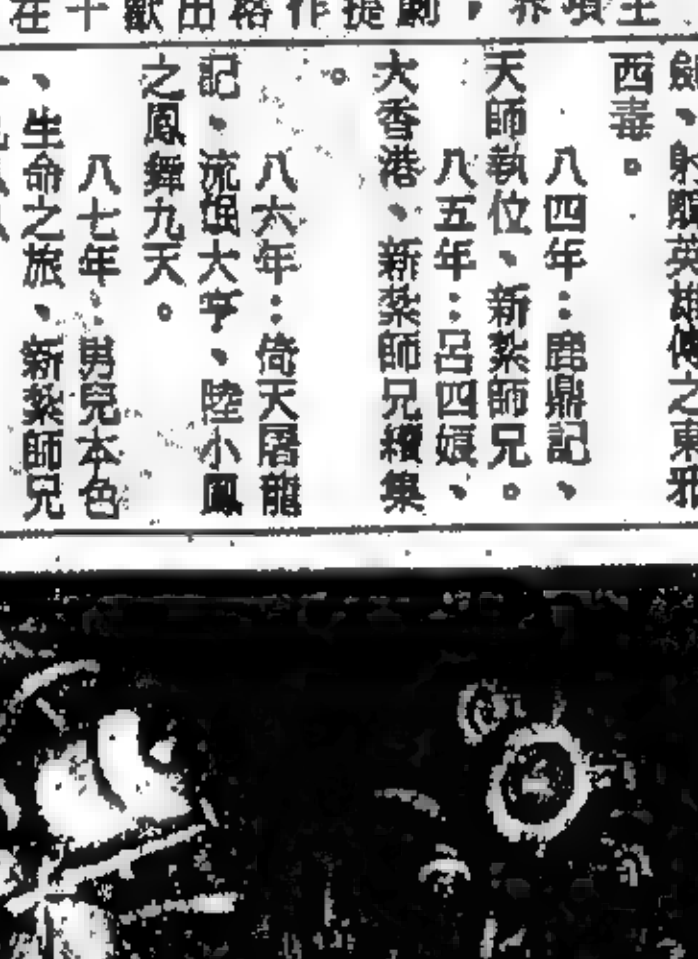 王項界，劇提作格出獻十在
劍、射鵰英雄傳之東邪
西毒。
八四年：鹿鼎記、
天師執位、新紮師兄。
八五年：呂四娘、
大香港、新紮師兄續集
。
八六年：倚天屠龍
記、流氓大亨、陸小鳳
之鳳舞九天。
八七年：男兒本色
、生命之旅、新紮師兄